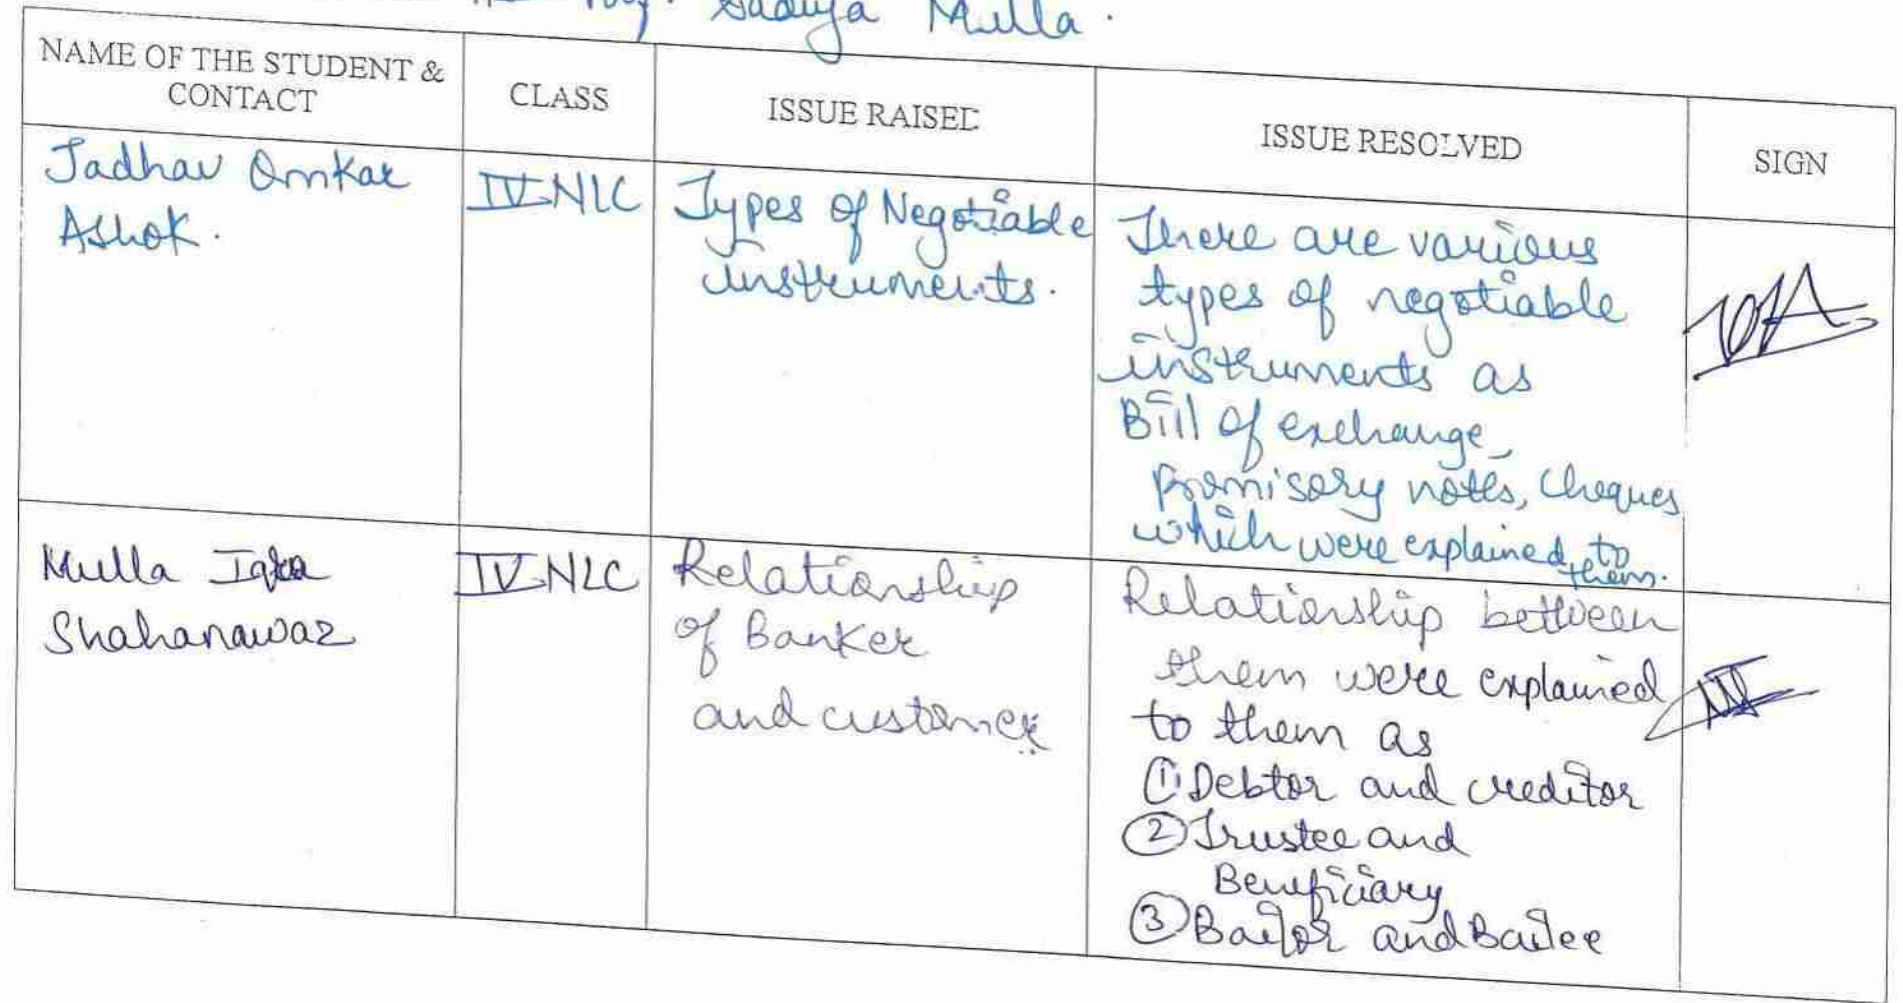 Sadiya Mulla.
NAME OF THE STUDENT &
CONTACT
CLASS
ISSUE RAISED
ISSUE RESOLVED
SIGN
Jadhav Omkar
Ashok.
IV NLC
Types of Negotiable
instruments.
There are various
types of negotiable
instruments as
Bill of exchange,
promisory notes, cheques
which were explained to
them.
Mulla
Shahanawaz
IV NLC
Relationship
of Banker
and customer
Relationship between
them were explained
to them as
① Debtor and creditor
② Trustee and
Beneficiary
③ Bailor and Bailee